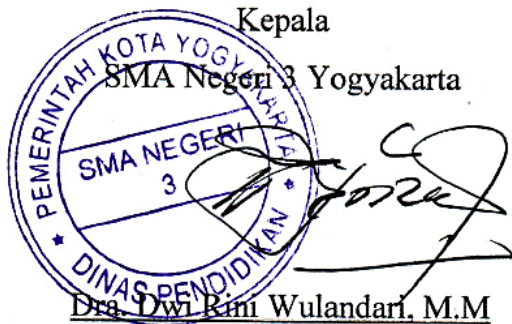 Kepala
SMA Negeri 3 Yogyakarta
PEMERINTAH KOTA YOGYAKARTA
SMA NEGERI
3
DINAS PENDIDIKAN
Dra. Dwi Rini Wulandari, M.M